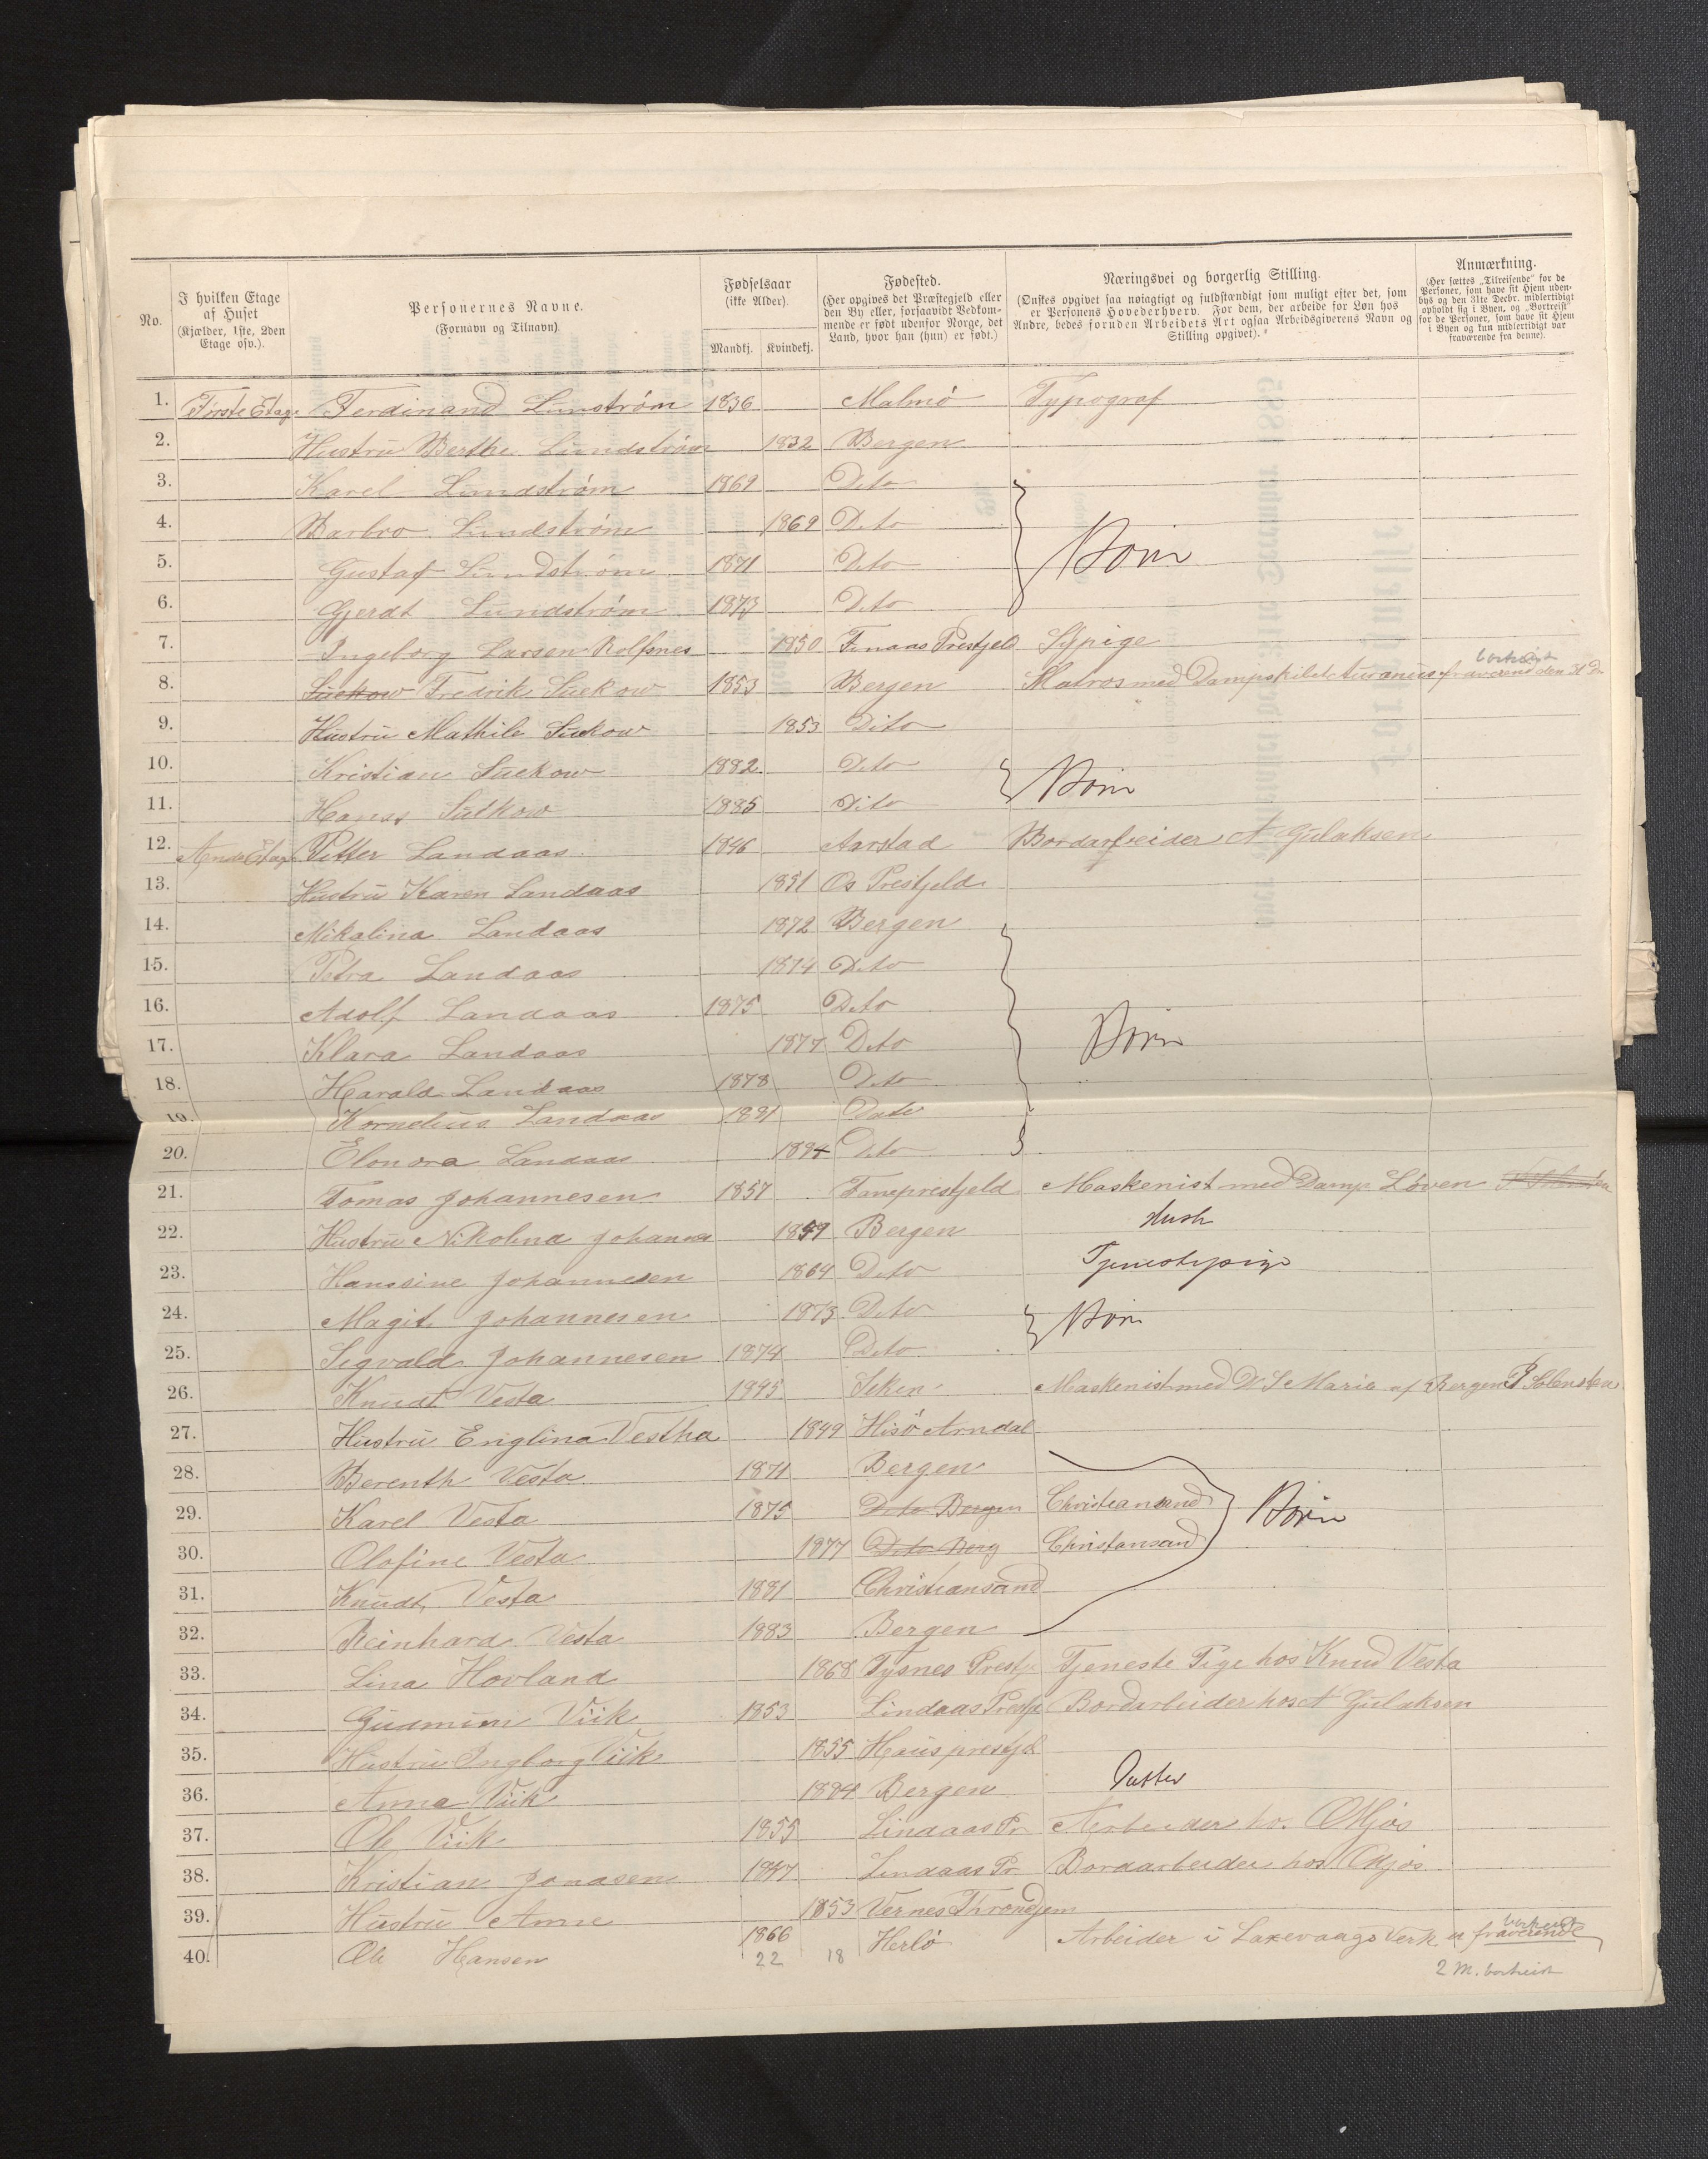 No.
I hvilken Etage af Huset (Kjælder, 1ste, 2den Etage osv.).
Personernes Navne. (Fornavn og Tilnavn).
Fødselsaar (ikke Alder). Mandkj. Kvindekj.
Fødested. (Her opgives det Præstegjeld eller den By eller, forsaavidt Vedkommende er født udenfor Norge, det Land, hvor han (hun) er født.)
Næringsvei og borgerlig Stilling. (Ønskes opgivet saa nøiagtigt og fuldstændigt som muligt efter det, som er Personens Hovederhverv. For dem, der arbeide for Løn hos Andre, bedes foruden Arbeidets Art ogsaa Arbeidsgiverens Navn og Stilling opgivet).
Anmærkning. (Her sættes „Tilreisende“ for de Personer, som have sit Hjem udenbys og den 31te Decbr. midlertidigt opholdt sig i Byen, og „Bortreist“ for de Personer, som have sit Hjem i Byen og kun midlertidigt var fraværende fra denne).
1. Første Etage Ferdinand Lunstrøm 1836 Malmö Typograf
2. Hustru Berthe Lundstrøm 1832 Bergen
3. Karel Lundstrøm 1869 Dito
4. Barbro Lundstrøm 1869 Dito Børn
5. Gustaf Lundstrøm 1871 Dito
6. Gjerdt Lundstrøm 1873 Dito
7. Ingeborg Larsen Rolfsnes 1850 Finaas Prestjeld Sypige
8. Suckow Fredrik Suckow 1853 Bergen Matros med Dampskibet fraverend den bortreist
9. Hustru Mathile Suckow 1853 Dito
10. Kristian Suckow 1882 Dito Børn
11. Hanss Sutkow 1885 Dito
12. Anden Etage Petter Landaas 1846 Aarstad Bordarbeider A Gulaksen
13. Hustru Karen Landaas 1851 Os Prestjeld
14. Mikalina Landaas 1872 Bergen
15. Petra Landaas 1874 Dito
16. Adolf Landaas 1875 Dito
17. Klara Landaas 1877 Dito Børn
18. Harald Landaas 1878 Dito
19. Kornelius Landaas 1881 Dito
20. Elonora Landaas 1884 Dito
21. Tomas Johannesen 1857 Faneprestjeld Maskenist med Damp Løven
22. Hustru Nikolina Johannes 1849 Bergen Hustr
23. Hanssine Johannesen 1864 Dito Tjenestepige
24. Magit Johannesen 1873 Dito Børn
25. Sigvald Johannesen 1874 Dito
26. Knudt Vesta 1845 Maskenist med D S Maria af Bergen
27. Hustru Englina Vestha 1849 Hisö Arndal
28. Berenth Vesta 1871 Bergen
29. Karel Vesta 1875 Dito Bergen Christiansand Børn
30. Olafine Vesta 1877 Dito Berg Christansand
31. Knudt Vesta 1881 Christiansand
32. Reinhard Vesta 1883 Bergen
33. Lina Hovland 1868 Tysnes Prestj Tjeneste Pige hos Knud Vesta
34. Gudmun Viik 1853 Lindaas Prestj Bordarbeider hos A Gulaksen
35. Hustru Ingborg Viik 1855 Haus prestjd
36. Anna Viik 1884 Bergen Datter
37. Ole Viik 1855 Lindaas Pr Arbeider ho. Mjøs
38. Kristian Jonasen 1847 Lindaas Pr Bordarbeider hos Mjøs
39. Hustru Anne 1853 Vernes Throndjem
40. Ole Hansen 1866 Herlø Arbeider i Laxevaags Verk er fraverende bortreist
22 18 2 M. bortreist